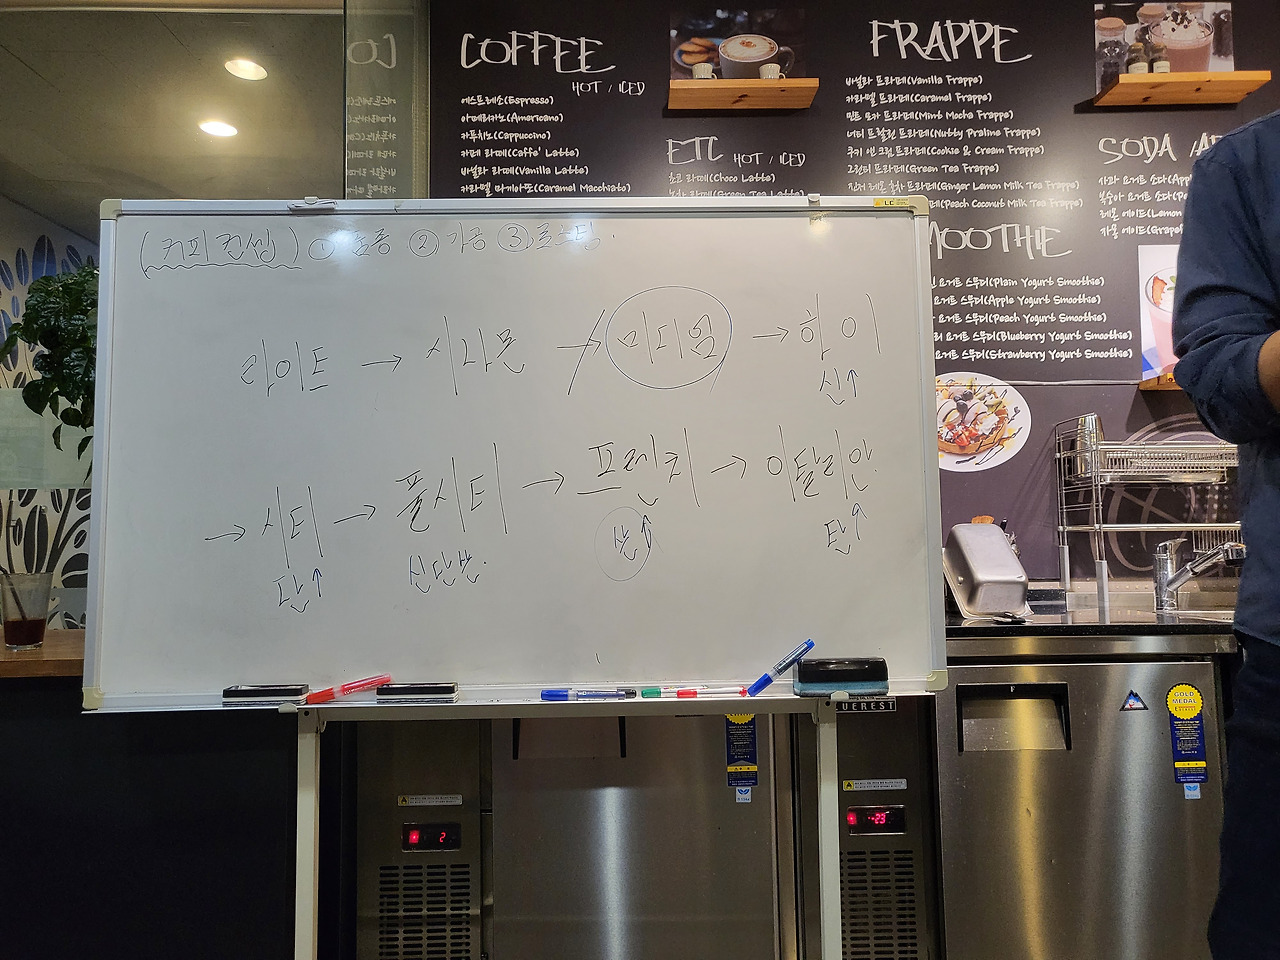 COFFEE
HOT / ICED
에스프레소(Espresso)
아메리카노(Americano)
카푸치노(Cappuccino)
카페 라떼(Caffe' Latte)
바닐라 라떼(Vanilla Latte)
카라멜 마끼아또(Caramel Macchiato)
ETC HOT / ICED
초코 라떼(Choco Latte)
녹차 라떼(Green Tea Latte)
FRAPPE
바닐라 프라페(Vanilla Frappe)
카라멜 프라페(Caramel Frappe)
민트 모카 프라페(Mint Mocha Frappe)
너티 프랄린 프라페(Nutty Praline Frappe)
쿠키 앤 크림 프라페(Cookie & Cream Frappe)
그린티 프라페(Green Tea Frappe)
진저 레몬 홍차 프라페(Ginger Lemon Milk Tea Frappe)
(Peach Coconut Milk Tea Frappe)
SODA / A
사과 요거트 소다(App
복숭아 요거트 소다(Pe
레몬 에이드(Lemon
자몽 에이드(Grapef
MOOTHIE
요거트 스무디(Plain Yogurt Smoothie)
요거트 스무디(Apple Yogurt Smoothie)
요거트 스무디(Peach Yogurt Smoothie)
리 요거트 스무디(Blueberry Yogurt Smoothie)
요거트 스무디(Strawberry Yogurt Smoothie)
(커피 컨셉) ① 품종 ② 가공 ③ 로스팅.
라이트 → 시나몬 → 미디엄 → 하이
신↑
→ 시티 → 풀시티 → 프렌치 → 이탈리안
단↑ 신단쓴. 쓴↑ 탄↑
LC
EVEREST
F
GOLD MEDAL
2
-23